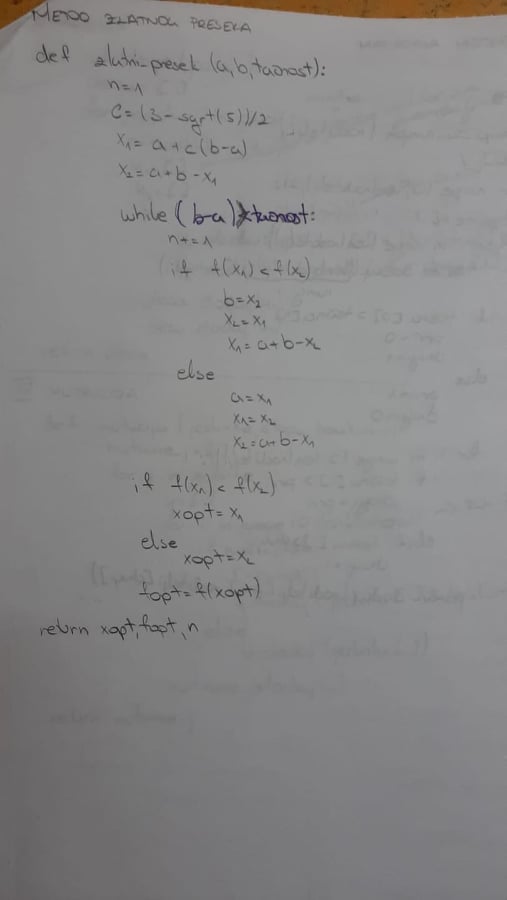 METOD ZLATNOG PRESEKA
def zlatni-presek (a,b,tacnost):
n=1
C=(3-sqrt(5))/2
x1= a+c(b-a)
x2=a+b-x1
while (b-a)>tacnost:
n+=1
if f(x1)<f(x2)
b=x2
x2=x1
x1=a+b-x2
else
a=x1
x1=x2
x2=a+b-x1
if f(x1)<f(x2)
xopt=x1
else
xopt=x2
fopt=f(xopt)
return xopt,fopt,n